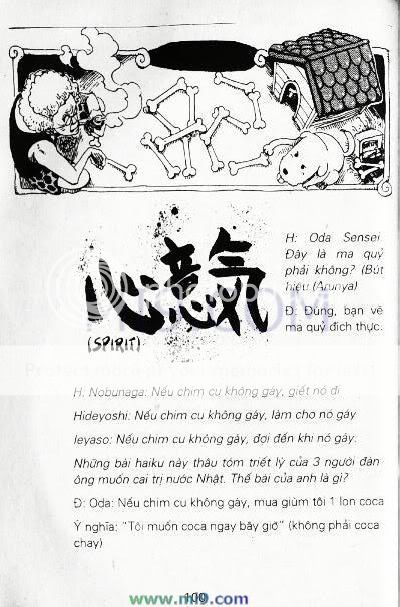 心意気
(SPIRIT)
H: Oda Sensei.
Đây là ma quỷ
phải không? (Bút
hiệu (Arunya)
Đ: Đúng, bạn vẽ
ma quỷ đích thực.
H. Nobunaga: Nếu chim cu không gáy, giết nó đi
Hideyoshi: Nếu chim cu không gáy, làm cho nó gáy
Ieyaso: Nếu chim cu không gáy, đợi đến khi nó gáy.
Những bài haiku này thâu tóm triết lý của 3 người đàn
ông muốn cai trị nước Nhật. Thế bài của anh là gì?
Đ: Oda: Nếu chim cu không gáy, mua giùm tôi 1 lon coca
Ý nghĩa: "Tôi muốn coca ngay bây giờ" (không phải coca
chay)
100
www.mi9.com